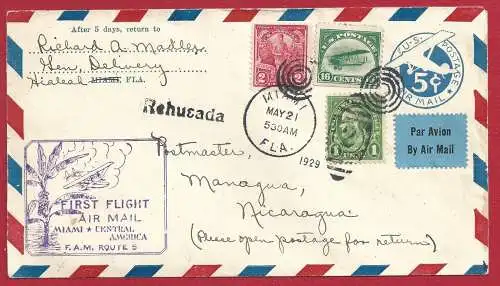 After 5 days, return to
Richard A
Gen. Delivery
Hialeah MIAMI, FLA.
2 2
U.S. POSTAGE
16 CENTS 16
U.S. POSTAGE
5¢
AIR MAIL
Rehusada
MIAMI
MAY 21
530AM
FLA.
1929
1 1
Par Avion
By Air Mail
FIRST FLIGHT
AIR MAIL
MIAMI ★ CENTRAL
AMERICA
F.A.M. ROUTE 5
Postmaster,
Managua,
Nicaragua
(Please open postage for return)